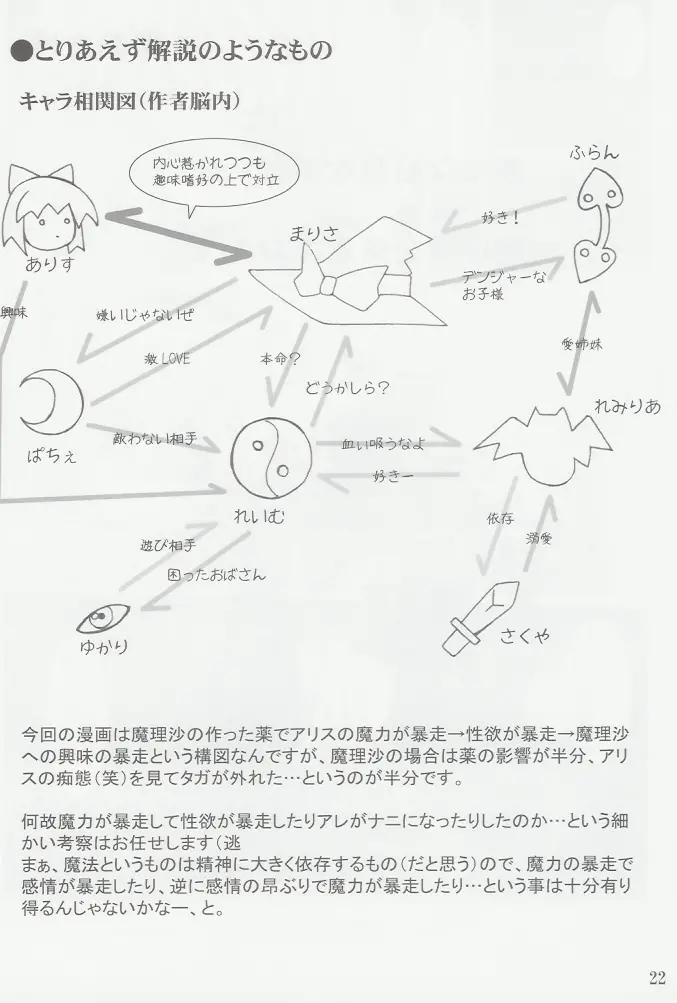 ●とりあえず解説のようなもの
キャラ相関図(作者脳内)
内心惹かれつつも
趣味嗜好の上で対立
ふらん
好き!
まりさ
ありす
デンジャーな
お子様
興味
嫌いじゃないぜ
激LOVE
本命?
どうかしら?
愛姉妹
れみりあ
敵わない相手
ぱちぇ
血ぃ吸うなよ
好きー
れいむ
依存
溺愛
遊び相手
困ったおばさん
ゆかり
さくや
今回の漫画は魔理沙の作った薬でアリスの魔力が暴走→性欲が暴走→魔理沙
への興味の暴走という構図なんですが、魔理沙の場合は薬の影響が半分、アリ
スの痴態(笑)を見てタガが外れた…というのが半分です。
何故魔力が暴走して性欲が暴走したりアレがナニになったりしたのか…という細
かい考察はお任せします(逃
まぁ、魔法というものは精神に大きく依存するもの(だと思う)ので、魔力の暴走で
感情が暴走したり、逆に感情の昂ぶりで魔力が暴走したり…という事は十分有り
得るんじゃないかなー、と。
22